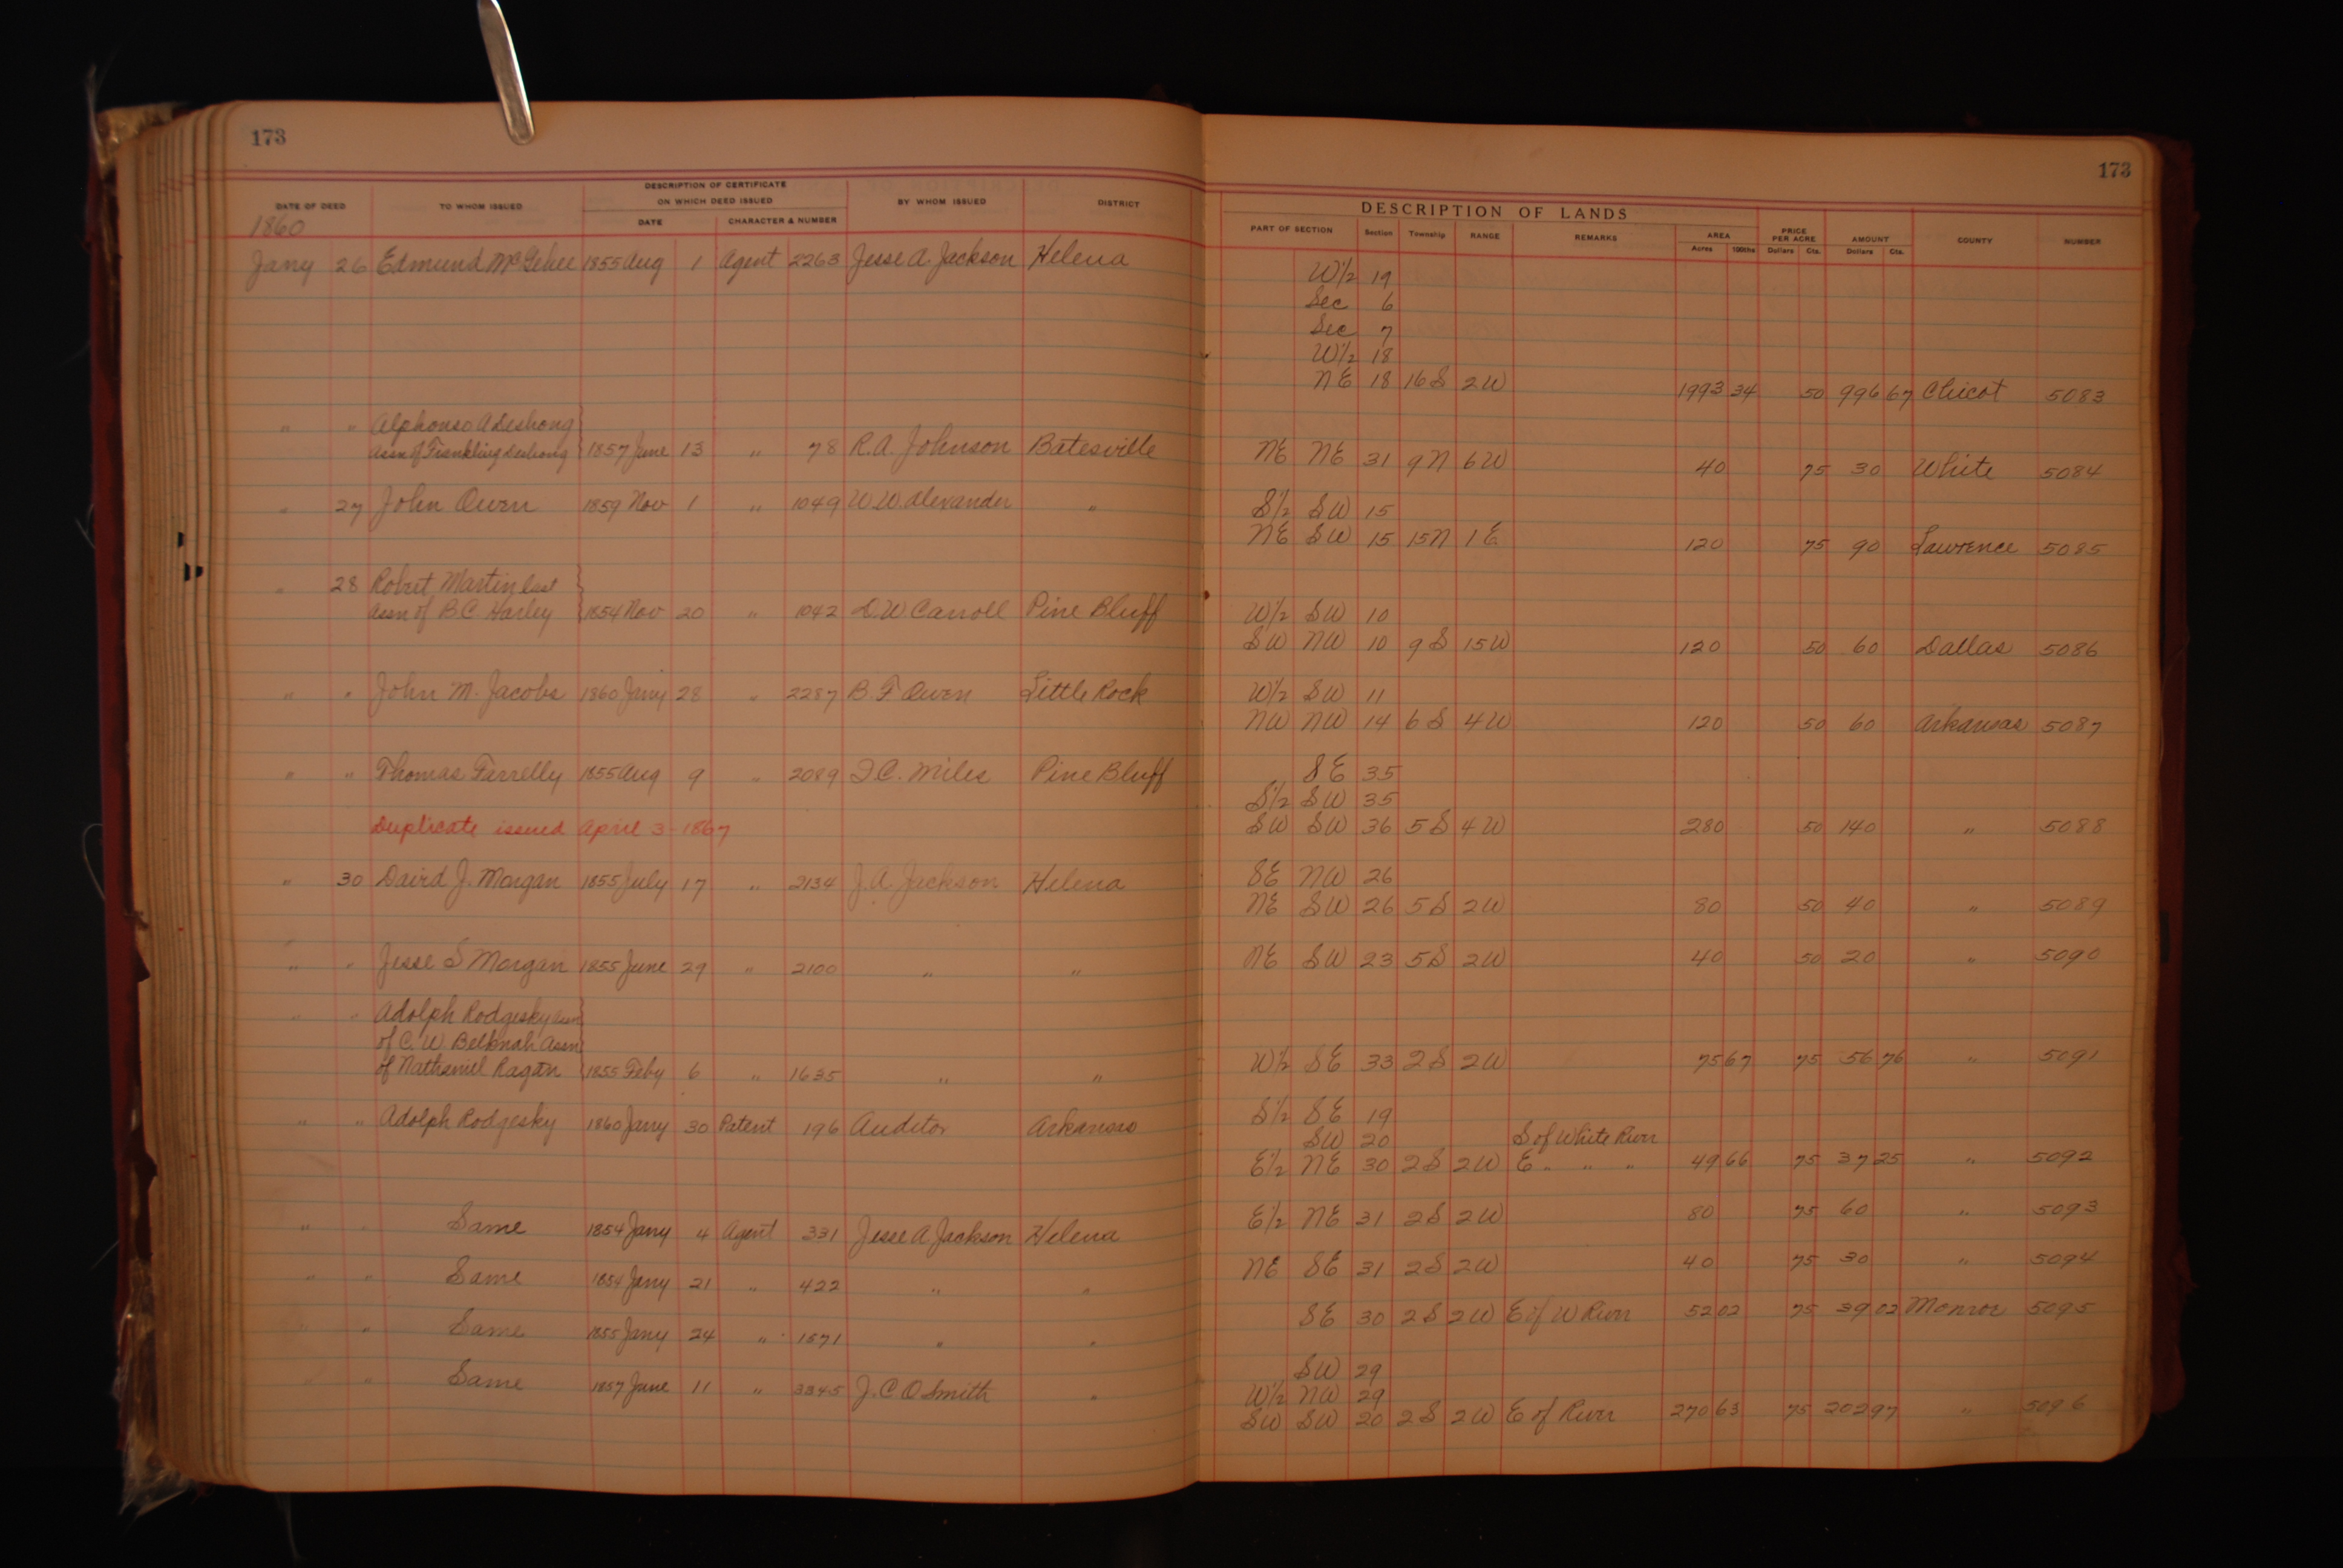 173
173
DESCRIPTION OF CERTIFICATE
ON WHICH DEED ISSUED
DATE OF DEED TO WHOM ISSUED DATE CHARACTER & NUMBER BY WHOM ISSUED DISTRICT
DESCRIPTION OF LANDS
PART OF SECTION Section Township RANGE REMARKS AREA Acres 100ths PRICE PER ACRE Dollars Cts. AMOUNT Dollars Cts. COUNTY NUMBER
1860
Jany 26 Edmund McGehee 1855 Aug 1 Agent 2263 Jesse A. Jackson Helena W½ 19
Sec 6
Sec 7
W½ 18
NE 18 16 S 2W 1993 34 50 996 67 Chicot 5083
" " Alphonso A Deshong
Assn of Franklin Deshong 1857 June 13 " 78 R.A. Johnson Batesville NE NE 31 9 N 6W 40 75 30 White 5084
" 27 John Owen 1859 Nov 1 " 1049 W.W. Alexander " S½ SW 15
NE SW 15 15N 1 E 120 75 90 Lawrence 5085
" 28 Robert Martin last
assn of B.C. Harley 1854 Nov 20 " 1042 D.W Carroll Pine Bluff W½ SW 10
SW NW 10 9 S 15W 120 50 60 Dallas 5086
" " John M. Jacobs 1860 Jany 28 " 2287 B. F Owen Little Rock W½ SW 11
NW NW 14 6 S 4W 120 50 60 Arkansas 5087
" " Thomas Farrelly 1855 Aug 9 " 2089 I.C. Miles Pine Bluff SE 35
S½ SW 35
Duplicate issued April 3-1867 SW SW 36 5 S 4 W 280 50 140 " 5088
" 30 David J. Morgan 1855 July 17 " 2134 J.A. Jackson Helena SE NW 26
NE SW 26 5 S 2W 80 50 40 " 5089
" " Jesse S Morgan 1855 June 29 " 2100 " " NE SW 23 5S 2W 40 50 20 " 5090
" " Adolph Rodgesky assn
of C. W Belknah Assn
of Nathaniel Ragan 1855 Feby 6 " 1635 " " W½ SE 33 2S 2W 75 67 75 56 76 " 5091
" " Adolph Rodgesky 1860 Jany 30 Patent 196 Auditor Arkansas S½ SE 19
SW 20 S of White River
E½ NE 30 2 S 2W E " " " 49 66 75 37 25 " 5092
" " Same 1854 Jany 4 Agent 331 Jesse A Jackson Helena E½ NE 31 2S 2W 80 75 60 " 5093
" " Same 1854 Jany 21 " 422 " " NE SE 31 2S 2W 40 75 30 " 5094
" " Same 1855 Jany 24 " 1571 " " SE 30 2 S 2W E of W River 52 02 75 39 02 Monroe 5095
" " Same 1857 June 11 " 3345 J. C O Smith " SW 29
W½ NW 29
SW SW 20 2 S 2W E of River 270 63 75 202 97 " 5096